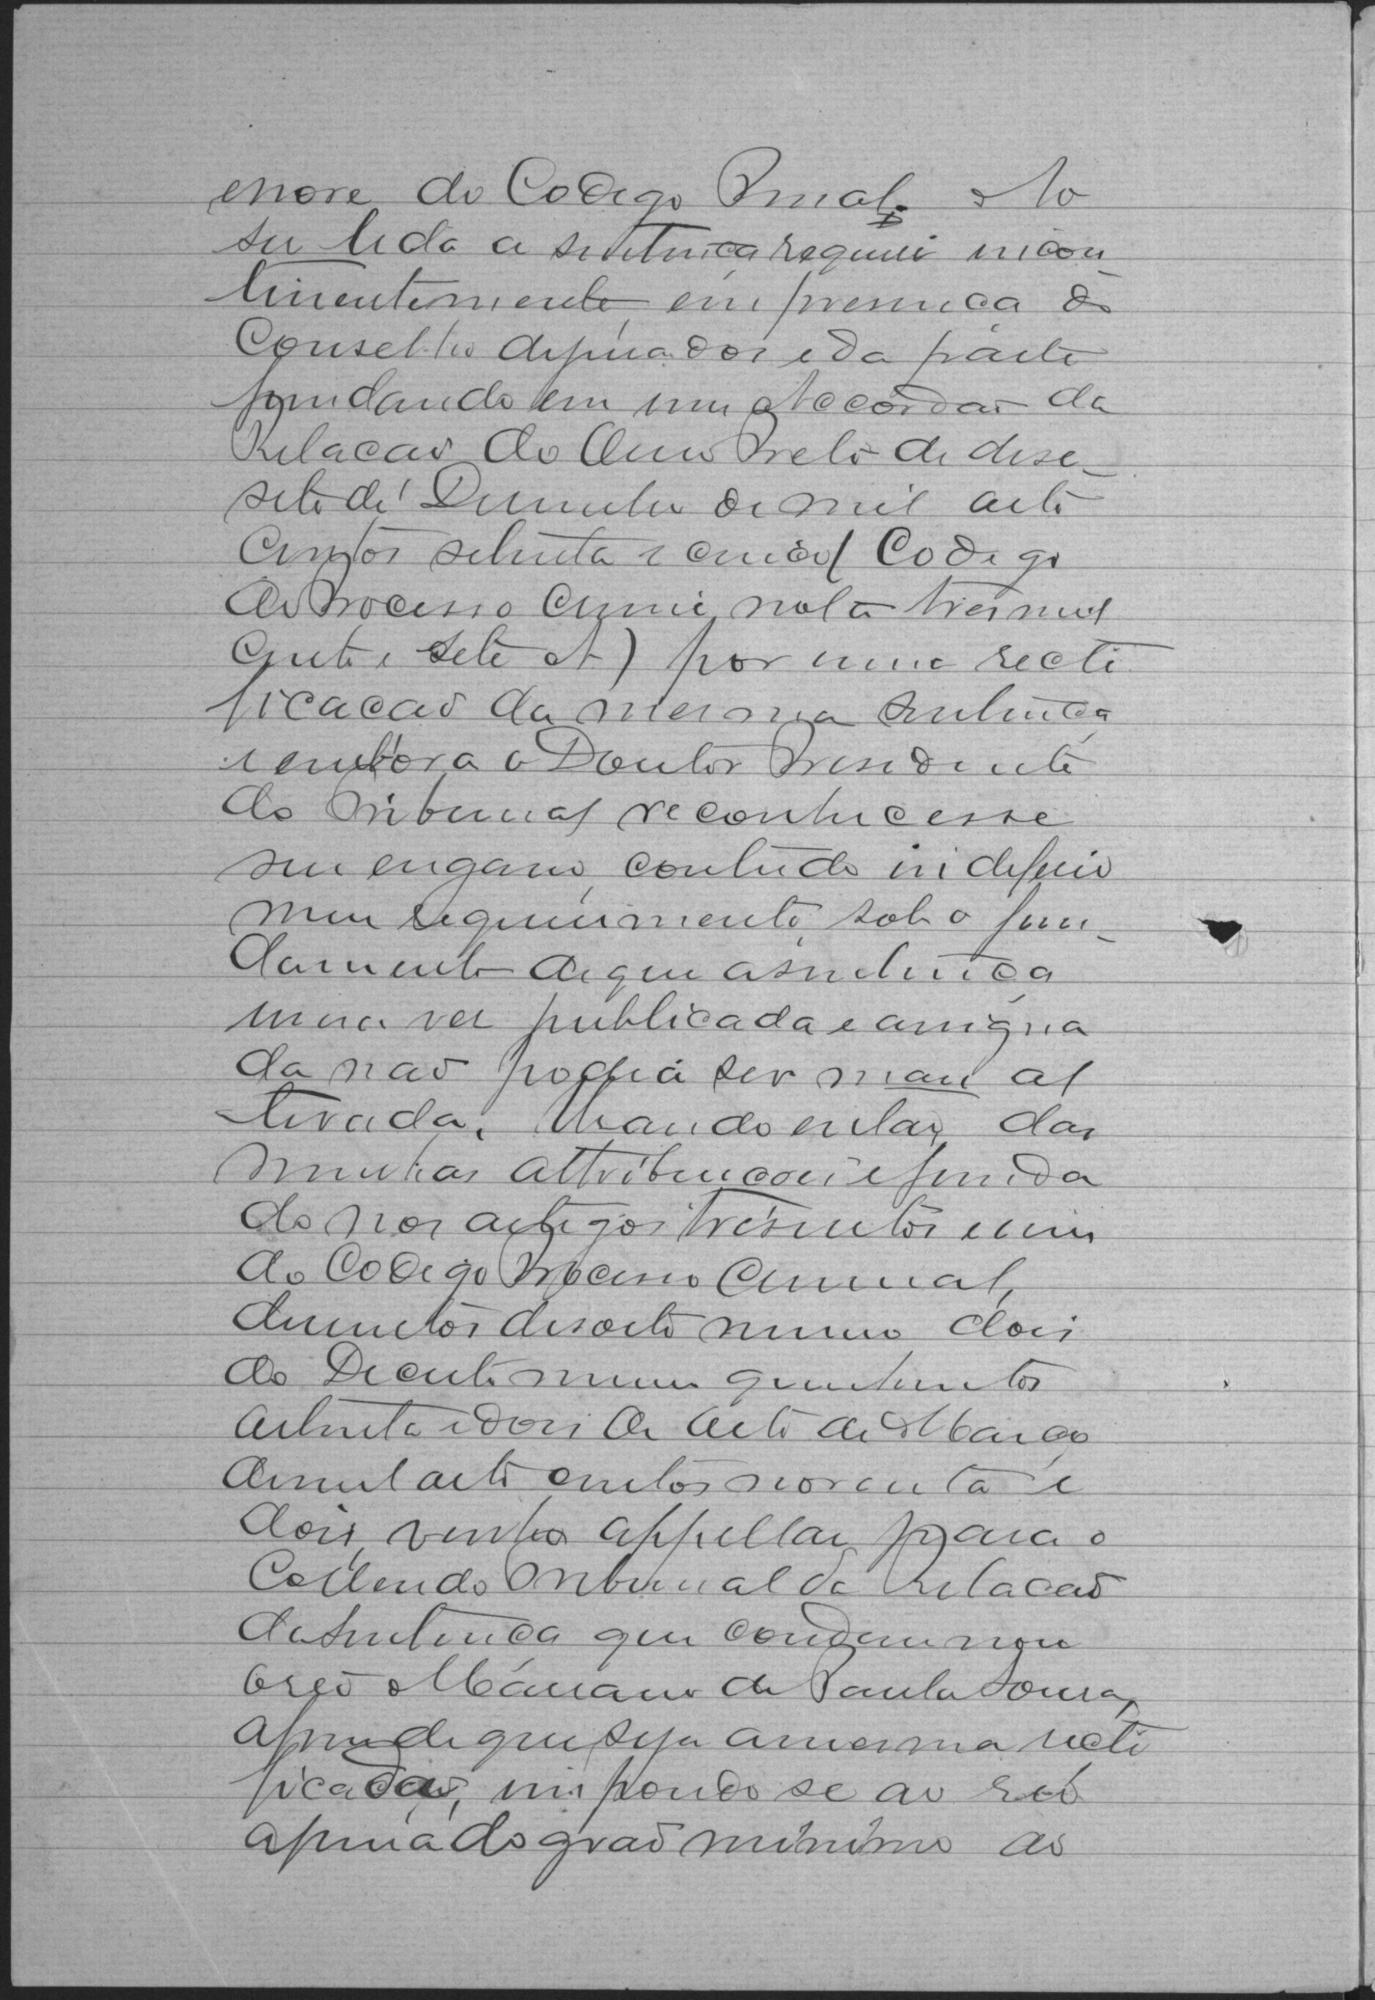 enove do Codigo Penal. Ao
ser lida a sentença requeri incon
tinentemente, em presença do
Conselho de jurados e da parte
fundando em um Accordão da
Relação do Ouro Preto de dese-
sete de Dezembro de mil oito
centos setenta e cinco (Codigo
do Processo Crime, nota tresmil
cento e sete A) por uma recti
ficação da mesma sentença
e embora o Doutor Presidente
do Tribunal reconhecesse
seu engano, contudo indeferio
meu requerimento, sob o fun-
damento de que a sentença
uma vez publicada e assigna
da não podia ser mais al
terada. Usando então, das
minhas attribuições e funda
do nos artigos tresentos e um
do Codigo Processo Criminal,
duzentos desoito numero dois
do Decreto numero quinhentos
setenta e dois de oito de Março
de mil oito centos noventa e
dois, venho appellar para o
Collendo Tribunal da Relação
da sentença que condemnou
o reo Mariano de Paula Sousa,
afim de que seja a mesma recti
ficada, impondo se ao reo
a pena do grao minimo do